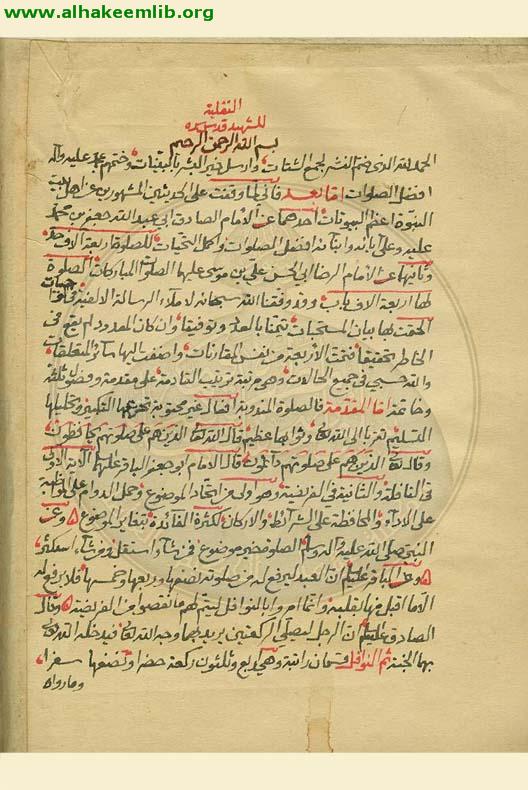 www.alhakeemlib.org
النفلية
للشهيد قدس سره
بسم الله الرحمن الرحيم
الحمد لله الذي ضم النشر لجمع الشتات وارسل خير البشر بالبينات وختمهم بمحمد عليه وآله
افضل الصلوات اما بعد فاني لما وقفت على الحديثين المشهورين عن اهل بيت
النبوة اعظم البيوتات احدهما عن الامام الصادق ابي عبد الله جعفر بن محمد
عليه وعلى آبائه وابنائه افضل الصلوات واكمل التحيات للصلوة اربعة الاف حد
وثانيهما عن الامام الرضا ابي الحسن علي بن موسى عليهما الصلوات المباركات الصلوة
لها اربعة الاف باب وقد وفقنا الله سبحانه لاملاء الرسالة الالفية في الواجبات
الحقت لها بيان المستحبات تيمنا بالعدد توفيقا وان كان المعدود لم يقع في
الخاطر تحقيقا فتمت الأربعة من نفس المقارنات واضفت اليها سائر المتعلقات
والله حسبي في جميع الحالات وهي مرتبة ترتيب القادمة على مقدمة وفصول ثلثة
وخاتمة اما المقدمة فالصلوة المندوبة افعال غير محتومة تحريمها التكبير وتحليلها
التسليم تقربا الى الله تعالى وثوابها عظيم قال الله تعالى الذين هم على صلوتهم يحافظون
وقال تعالى الذين هم على صلوتهم دائمون قال الامام ابو جعفر الباقر عليهما الآية الاولى
في النافلة والثانية في الفريضة وهو ولد عن اتحاد الموضوع وحمل الدوام على المواظبة
على الاداء والمحافظة على الشرائط والاركان لكثرة الفائدة بتغاير الموضوع وعن
النبي صلى الله عليه وآله وسلم الصلوة خير موضوع فمن شاء استقل ومن شاء استكثر
وعن الباقر عليه السلم ان العبد ليرفع له من صلوته نصفها وربعها وخمسها فلا يرفع له
الا ما اقبل منها بقلبه وانما امروا بالنوافل ليتم لهم ما نقصوا من الفريضة وقال
الصادق عليه السلم ان الرجل ليصلي الركعتين يريد بهما وجه الله تعالى فيدخله الله تعالى
بها الجنة ثم النوافل قسمان راتبة وهي اربع وثلثون ركعة حضرا ونصفها سفرا
وما رواه